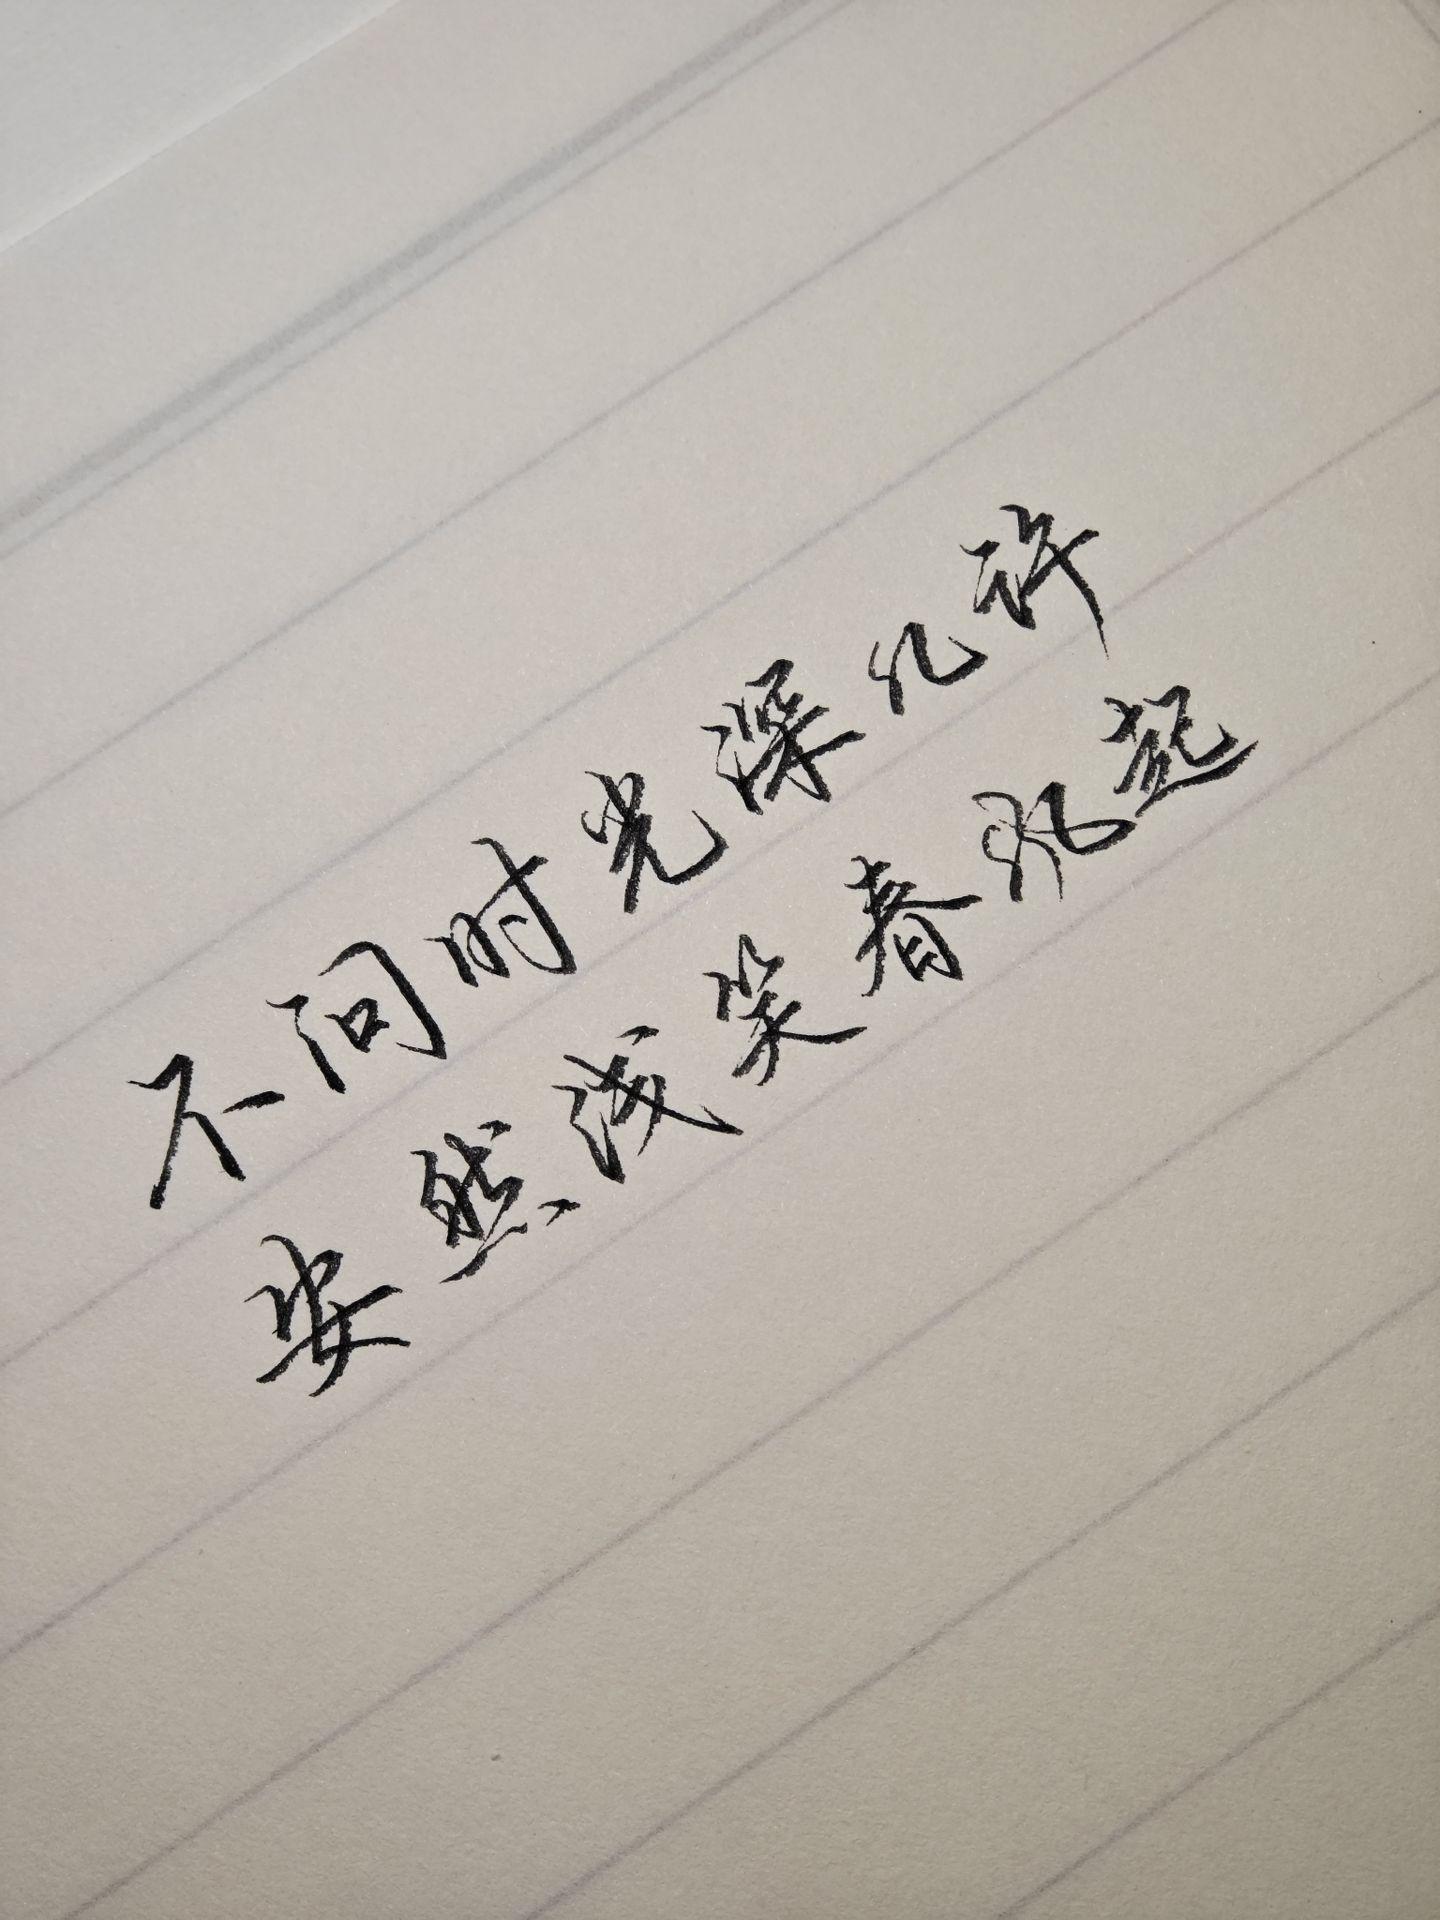 不问时光深几许
安然浅笑春风起